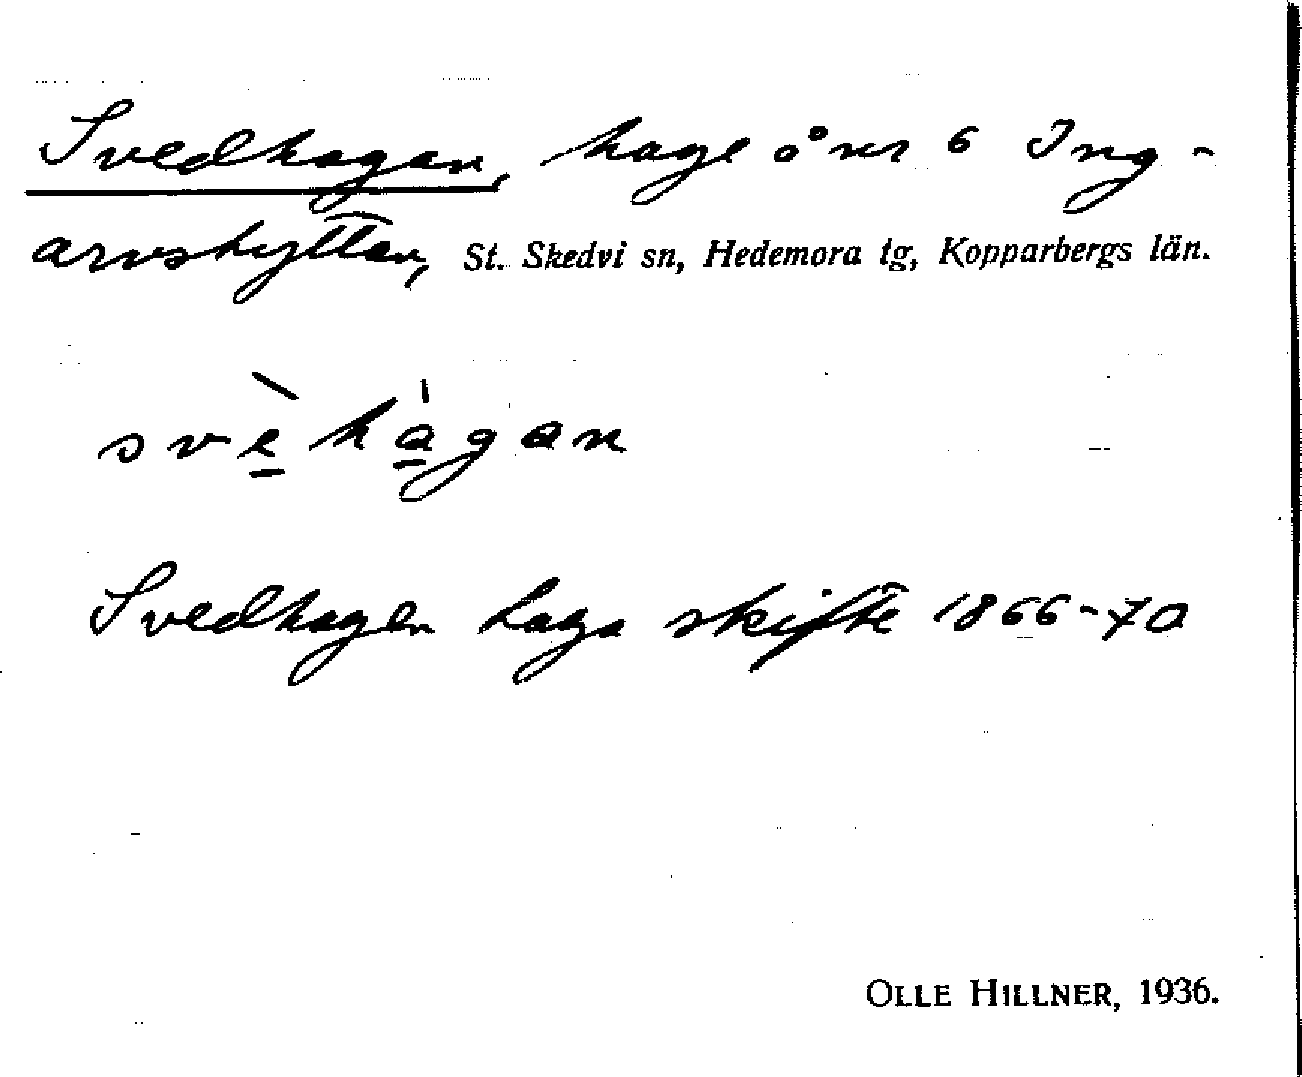 Svedhagan, hage å nr 6 Ing-
arvshyttan, St. Skedvi sn, Hedemora tg, Kopparbergs län.
svè hágan
Svedhagen Laga skifte 1866-70
OLLE HILLNER, 1936.